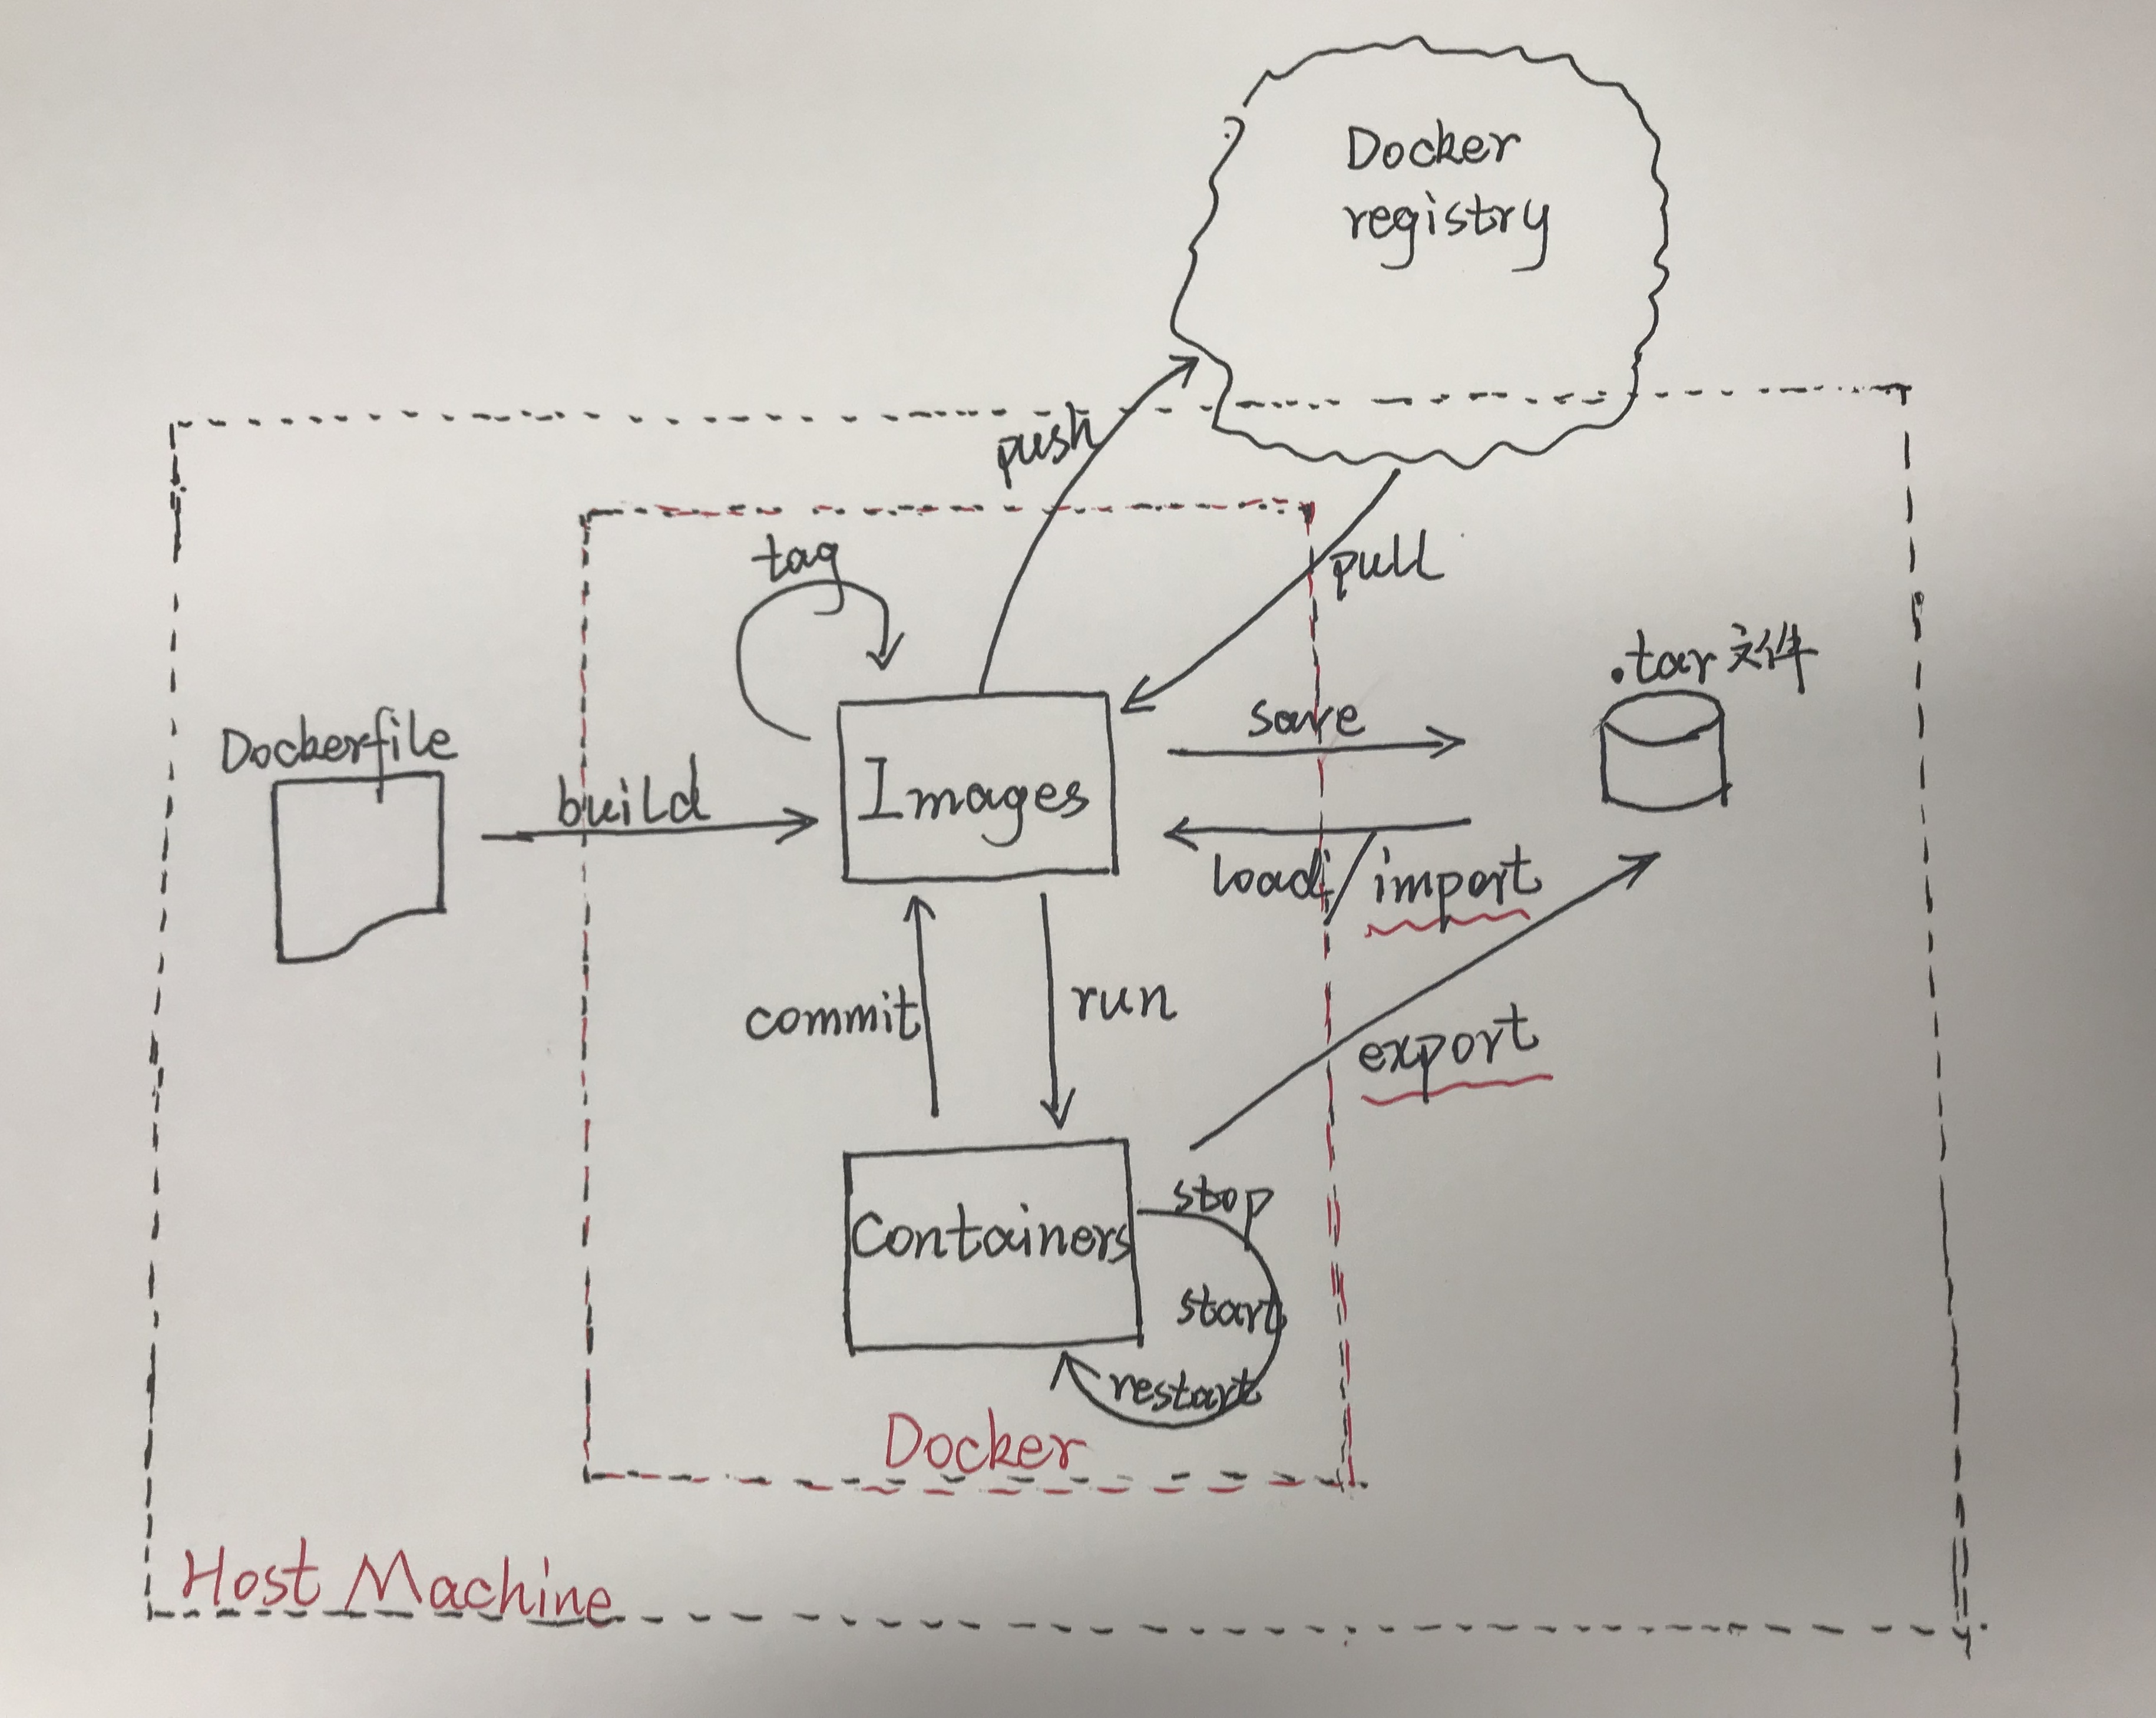 Docker
registry
push
tag
pull
.tar文件
save
Dockerfile
build
Images
load/import
commit
run
export
stop
Containers
start
restart
Docker
Host Machine